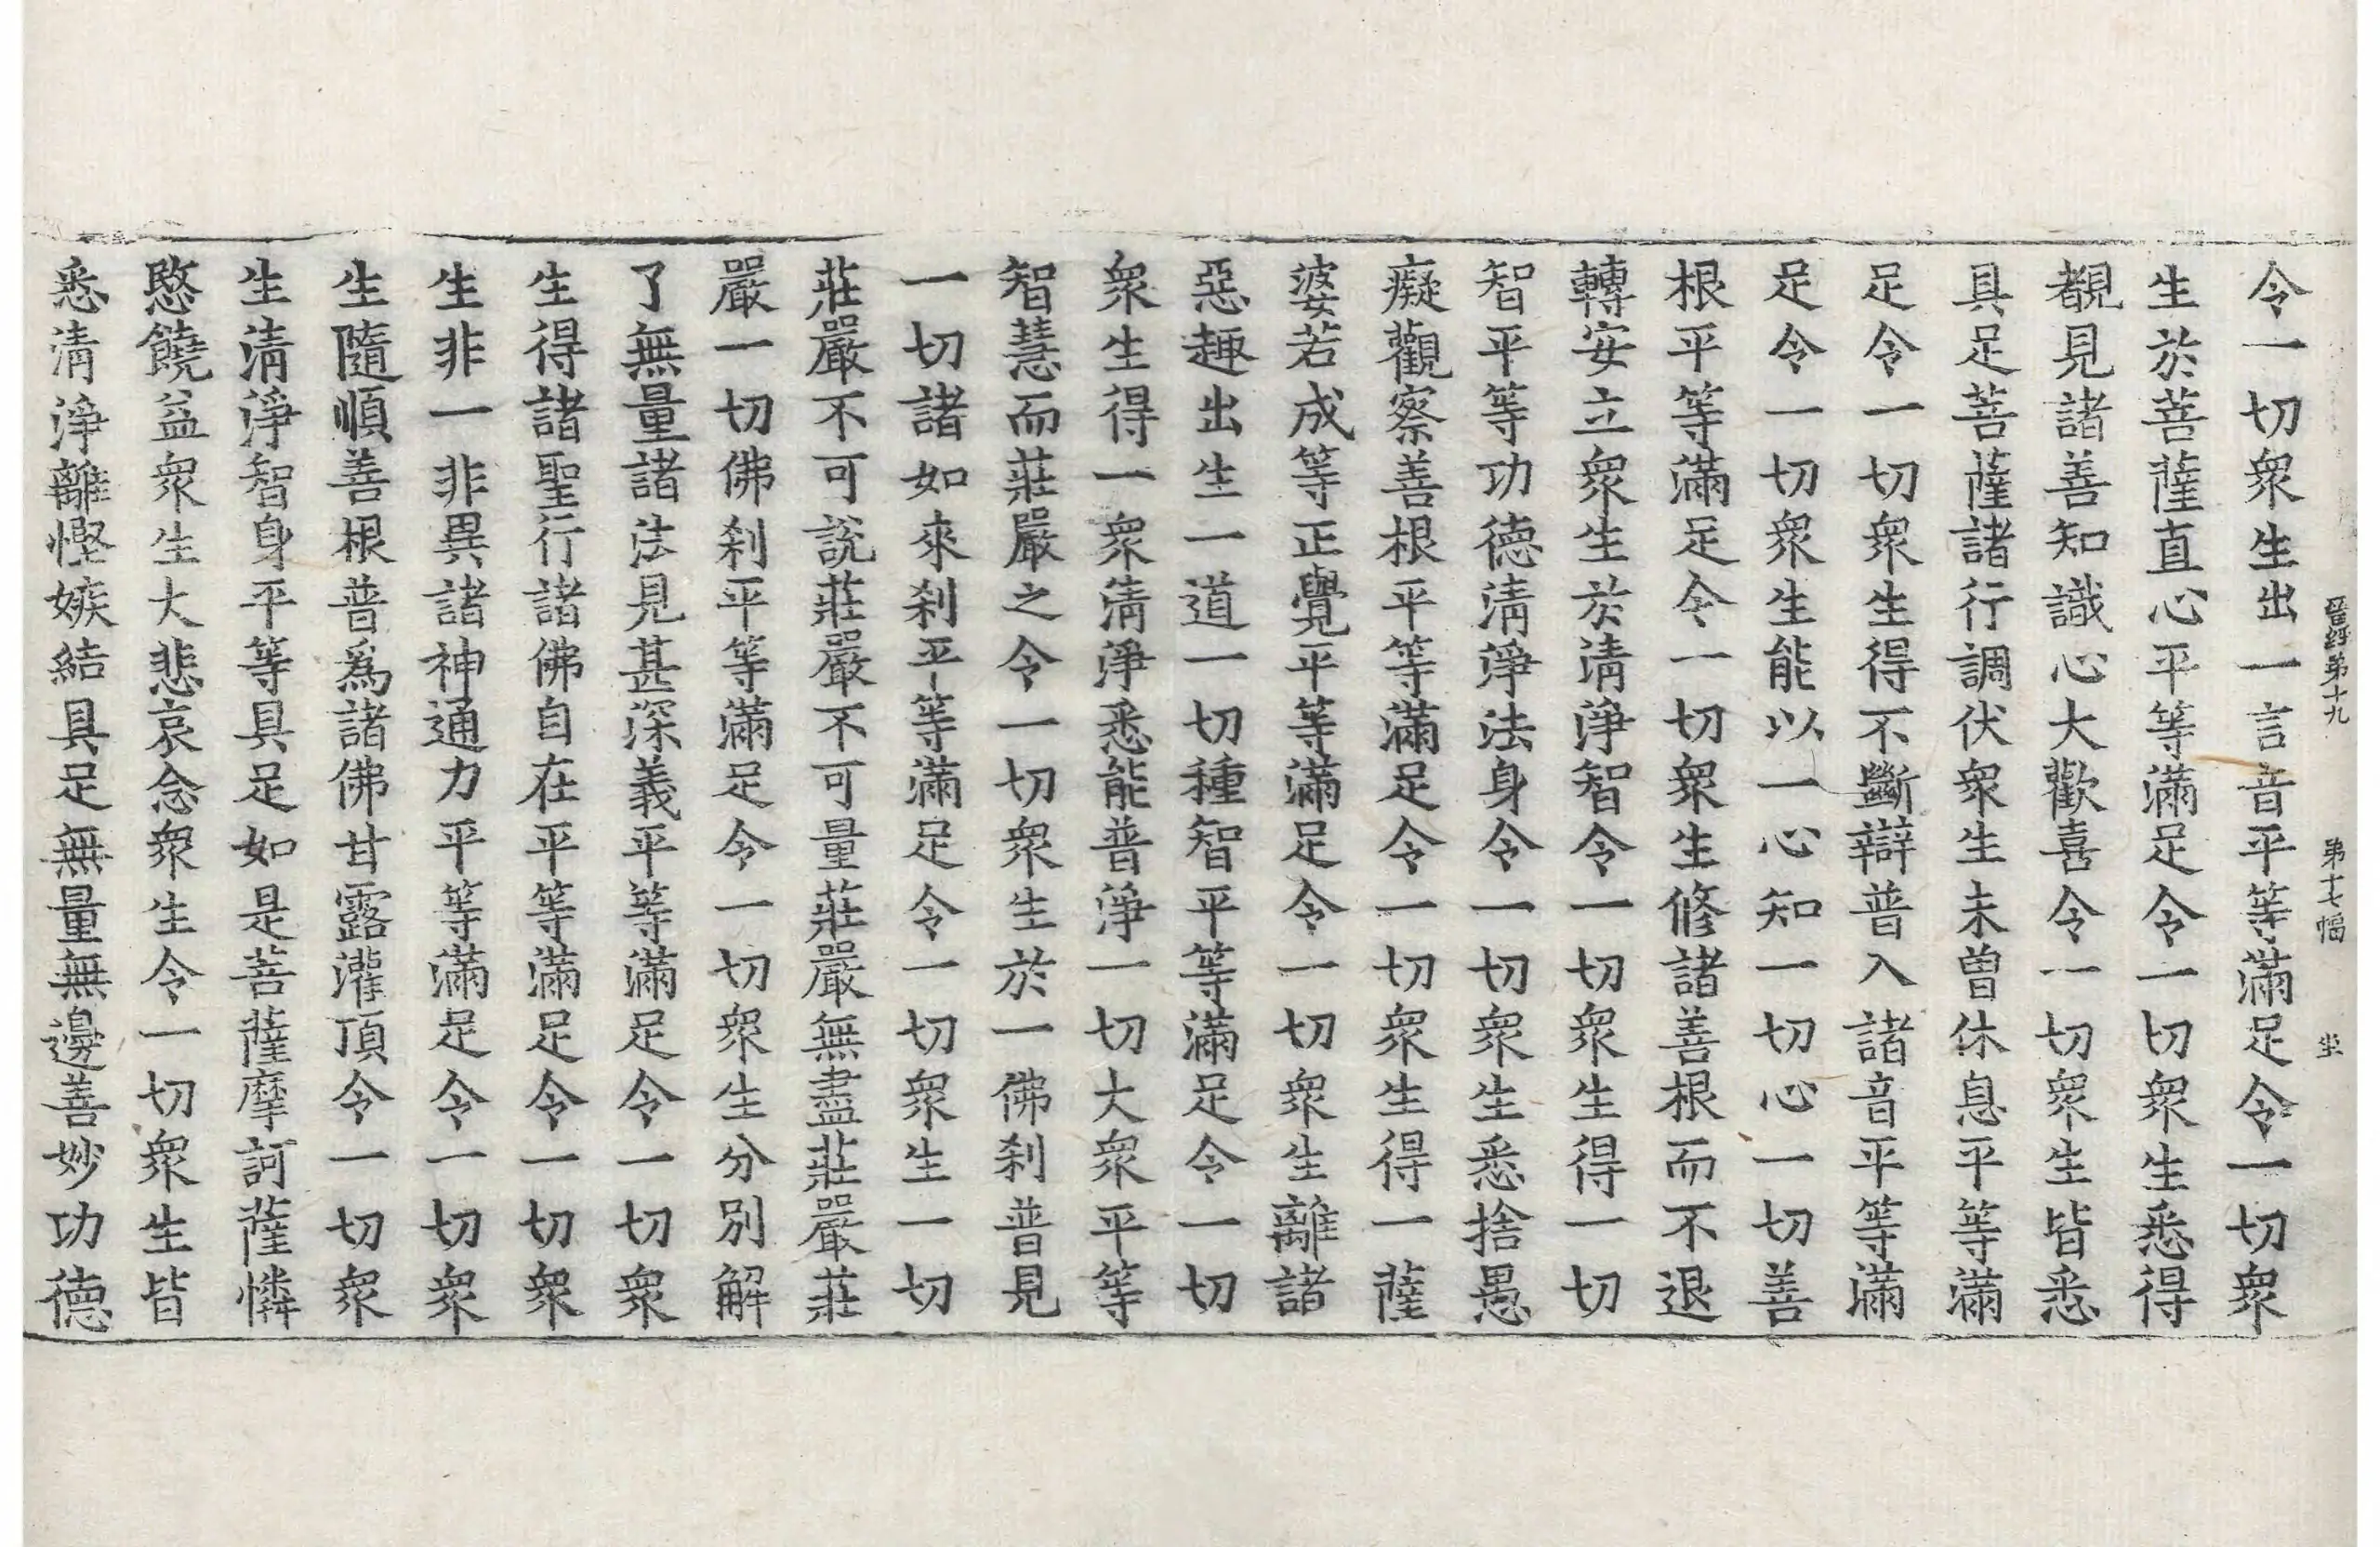 晉經第十九 第十七幅 坐
令一切衆生出一言音平等滿足令一切衆
生於菩薩直心平等滿足令一切衆生悉得
覩見諸善知識心大歡喜令一切衆生皆悉
具足菩薩諸行調伏衆生未曾休息平等滿
足令一切衆生得不斷辯普入諸音平等滿
足令一切衆生能以一心知一切心一切善
根平等滿足令一切衆生修諸善根而不退
轉安立衆生於清淨智令一切衆生得一切
智平等功德清淨法身令一切衆生悉捨愚
癡觀察善根平等滿足令一切衆生得一薩
婆若成等正覺平等滿足令一切衆生離諸
惡趣出生一道一切種智平等滿足令一切
衆生得一衆清淨悉能普淨一切大衆平等
智慧而莊嚴之令一切衆生於一佛刹普見
一切諸如來刹平等滿足令一切衆生一切
莊嚴不可說莊嚴不可量莊嚴無盡莊嚴莊
嚴一切佛刹平等滿足令一切衆生分別解
了無量諸法見甚深義平等滿足令一切衆
生得諸聖行諸佛自在平等滿足令一切衆
生非一非異諸神通力平等滿足令一切衆
生隨順善根普爲諸佛甘露灌頂令一切衆
生清淨智身平等具足如是菩薩摩訶薩憐
愍饒益衆生大悲哀念衆生令一切衆生皆
悉清淨離慳嫉結具足無量無邊善妙功德